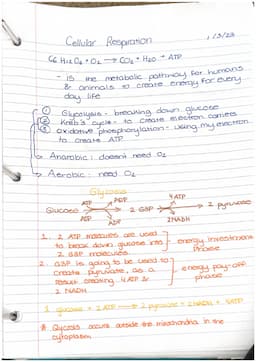 Cellular Respiration
1/3/23
C6 H12 O6 + O2 → CO2 + H2O + ATP
- is the metabolic pathway for humans
& animals to create energy for every
day life
① Glycolysis - breaking down glucose
② Kreb's cycle - to create electron carriers
③ oxidative phosphorylation - using my electron
to create ATP
Anarobic: doesnt need O2
Aerobic: need O2
Glycosis
ATP ADP 4 ATP
Glucose → 2 G3P → 2 pyruvate
ATP ADP 2 NADH
1. 2 ATP molecules are used
to break down glucose into
2 G3P molecules
energy investment
phase
2. G3P is going to be used to
create pyruvate, as a
result creating 4 ATP &
2 NADH
energy pay-off
phase
1 glucose + 2 ATP → 2 pyruvate + 2 NADH + 4 ATP
* Glycosis occurs outside the mitochondria in the
cytoplasm